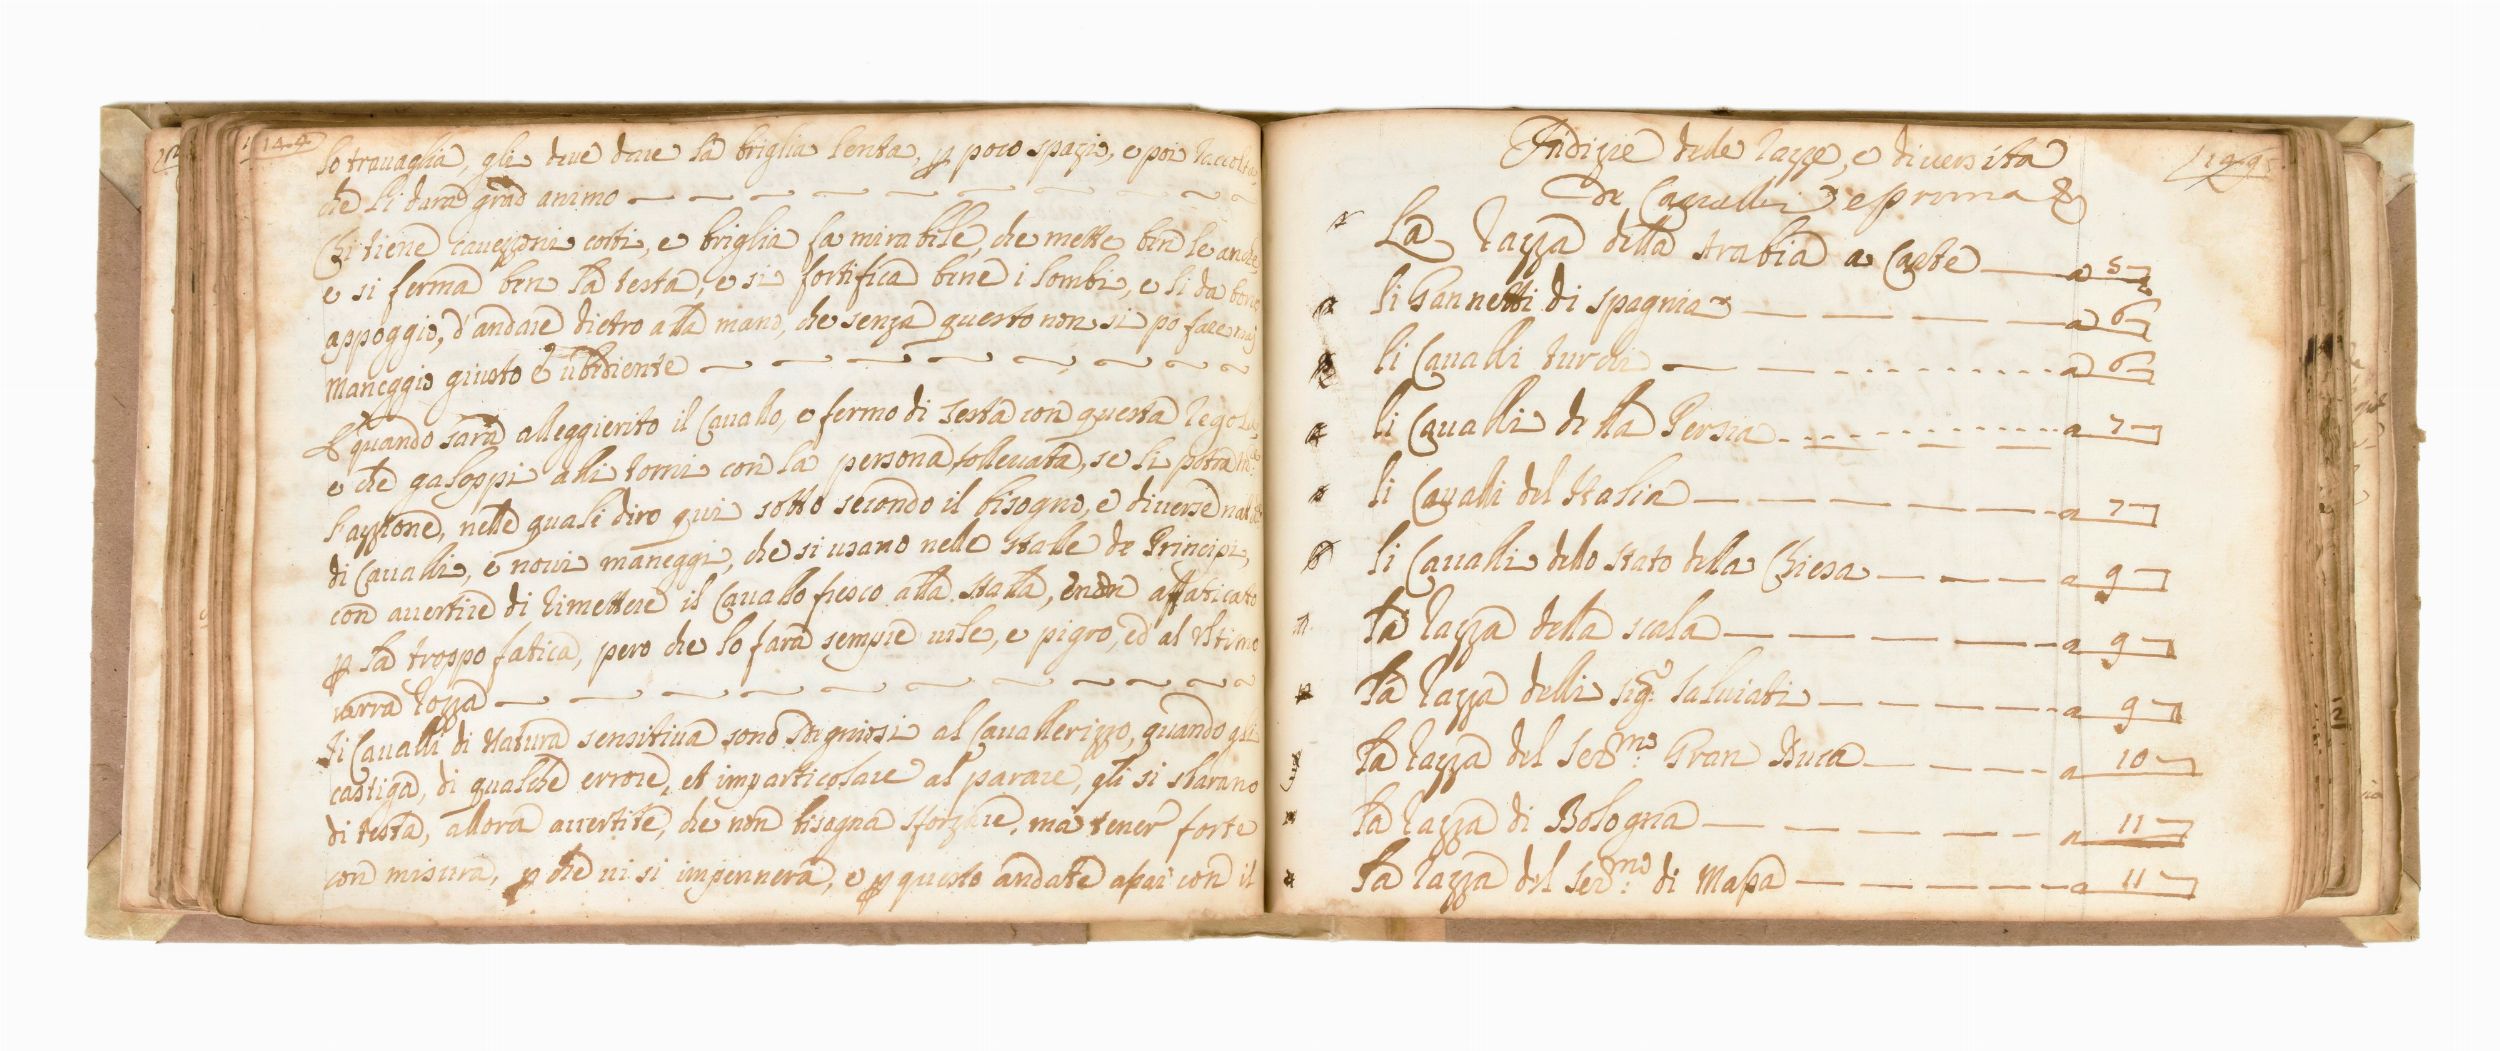 144
lo trauaglia, gli deue dare la briglia lenta, p poco spazio, e poi raccolta,
che li darà gran animo
Chi tiene cauezzoni corti, e briglia fa mirabile, che mette ben le anche,
e si ferma ben la testa, e si fortifica bene i lombi, e li da bono
appoggio, d'andare dietro alla mano, che senza questo non si po fare mai
maneggio giusto è ubidiente
E quando sarà alleggierito il Cauallo, e fermo di testa con questa regola,
e che galoppi alli torni con la persona solleuata, se li potrà
l'azzione, nelle quali diro qui sotto secondo il bisogno, e diuerse
di Caualli, e noui maneggi, che si usano nelle stalle de Principi,
con auertire di rimettere il Cauallo fresco alla stalla, e non affaticato
p la troppo fatica, pero che lo farà sempre uile, e pigro, ed al ultimo
uerrà rozza
Li Caualli di natura sensitiua sono sdegniosi al Cauallerizzo, quando gli
castiga, di qualche errore, et imparticolare al parare, gli si sbarano
di testa, allora auertite, che non bisogna sforzare, ma tener forte
con misura, p che ui si impennerà, e p questo andate apai con il
Indizie delle razze, e diuersita
de Caualli e prima
La razza della Arabia a Carte — a 5
li Giannetti di Spagnia — a 6
li Caualli turchi — a 6
li Caualli della Persia — a 7
li Caualli del Italia — a 7
li Caualli dello stato della Chiesa — a 9
la razza della scala — a 9
la razza delli sig.ri Saluiati — a 9
la razza del ser.mo Gran Duca — a 10
la razza di Bologna — a 11
la razza del ser.mo di Massa — a 11